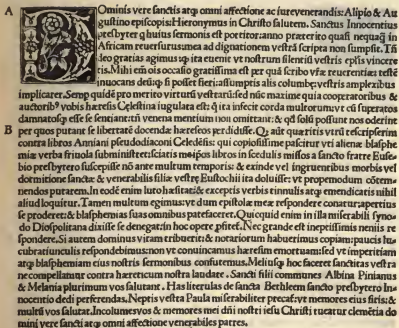 A Dominis vere sanctis atq; omni affectione ac iure venerandis: Alipio & Au
gustino episcopis: Hieronymus in Christo salutem. Sanctus Innocentius
presbyter q huius sermonis est portitor: anno præterito quasi nequaq̃ in
Africam reuersurus: mea ad dignationem vestrã scripta non sumpsit. Tñ
deo gratias agimus q̃ ita euenit vt nostrum silentiũ vestris eplis vincere
tis. Mihi em̃ ois occasio gratissima est per quã scribo vr̃æ reuerentiæ: testẽ
inuocans deũ: q̃ si posset fieri: assumptis alis columbę: vestris amplexibus
implicarer. Semp quidẽ pro merito virtutũ vestrarũ: sed nũc maxime quia cooperatoribus &
auctoribꝰ vobis hæresis Cęlestina iugulata est: q̃ ita infecit corda multorum: vt cũ superatos
damnatosq; esse se sentiant: tñ venena mentium non omittant: & qd̃ solũ possunt nos oderint
B per quos putant se libertatẽ docendæ hæreseos perdidisse. Qz aũt quæritis vtrũ rescripserim
contra libros Anniani pseudodiaconi Celedẽsis: qui copiosissime pascitur vt alienæ blasphe
miæ verba friuola subministret: sciatis me ipsos libros in scedulis missos a sancto fratre Euse
bio presbytero suscepisse nõ ante multum temporis: & exinde vel ingruentibus morbis vel
dormitione sanctæ & venerabilis filiæ vestrę Eustochii ita doluisse: vt propemodum cõtem
nendos putarem. In eodẽ enim luto hæsitat: & exceptis verbis tinnulis atq; emendicatis nihil
aliud loquitur. Tamen multum egimus: vt dum epistolæ meæ respondere conatur: apertius
se proderet: & blasphemias suas omnibus patefaceret. Quicquid enim in illa miserabili syno
do Diospolitana dixisse se denegat: in hoc opere pfitet. Nec grande est ineptissimis neniis re
spondere. Si autem dominus vitam tribuerit: & notariorum habuerimus copiam: paucis lu
cubratiunculis respondebimus: non vt conuincamus hæresim emortuam: sed vt imperitiam
atq; blasphemiam eius nostris sermonibus confutemus. Meliusq; hoc faceret sanctitas vestra
ne compellamur contra hæreticum nostra laudare. Sancti filii communes Albina Pinianus
& Melania plurimum vos salutant. Has literulas de sancta Bethleem sancto presbytero In
nocentio dedi perferendas. Neptis vestra Paula miserabiliter precat̃: vt memores eius sitis: &
multũ vos salutat. Incolumes vos & memores mei dñi nostri iesu Christi tueatur clemẽtia do
mini vere sancti atq; omni affectione venerabiles patres.